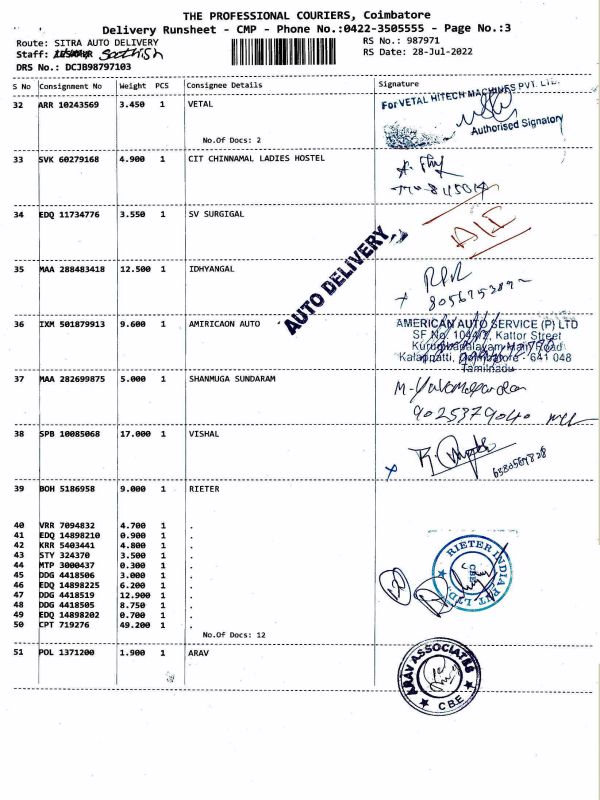 THE PROFESSIONAL COURIERS, Coimbatore
Delivery Runsheet - CMP - Phone No.:0422-3505555 - Page No.:3
Route: SITRA AUTO DELIVERY
RS No.: 987971
Staff: Sathish
RS Date: 28-Jul-2022
DRS No.: DCJB98797103
S No Consignment No Weight PCS Consignee Details Signature
32 ARR 10243569 3.450 1 VETAL
No.Of Docs: 2
For VETAL HITECH MACHINES PVT. LTD.
Authorised Signatory
33 SVK 60279168 4.900 1 CIT CHINNAMAL LADIES HOSTEL
34 EDQ 11734776 3.550 1 SV SURGIGAL
AUTO DELIVERY
35 MAA 288483418 12.500 1 IDHYANGAL
36 IXM 501879913 9.600 1 AMIRICAON AUTO
AMERICAN AUTO SERVICE (P) LTD
SF No. 104 Kattor Street
Kurumbapalayam Main Road
Kalappatti, Coimbatore - 641 048
Tamilnadu
37 MAA 282699875 5.000 1 SHANMUGA SUNDARAM
9025379040
38 SPB 10085068 17.000 1 VISHAL
39 BOH 5186958 9.000 1 RIETER
40 VRR 7094832 4.700 1 .
41 EDQ 14898210 0.900 1 .
42 KRR 5403441 4.800 1 .
43 STY 324370 3.500 1 .
44 MTP 3000437 0.300 1 .
45 DDG 4418506 3.000 1 .
46 EDQ 14898225 6.200 1 .
47 DDG 4418519 12.900 1 .
48 DDG 4418505 8.750 1 .
49 EDQ 14898202 0.700 1 .
50 CPT 719276 49.200 1 .
No.Of Docs: 12
RIETER INDIA PVT LTD
CBE
51 POL 1371200 1.900 1 ARAV
ARAV ASSOCIATES
C.B.E